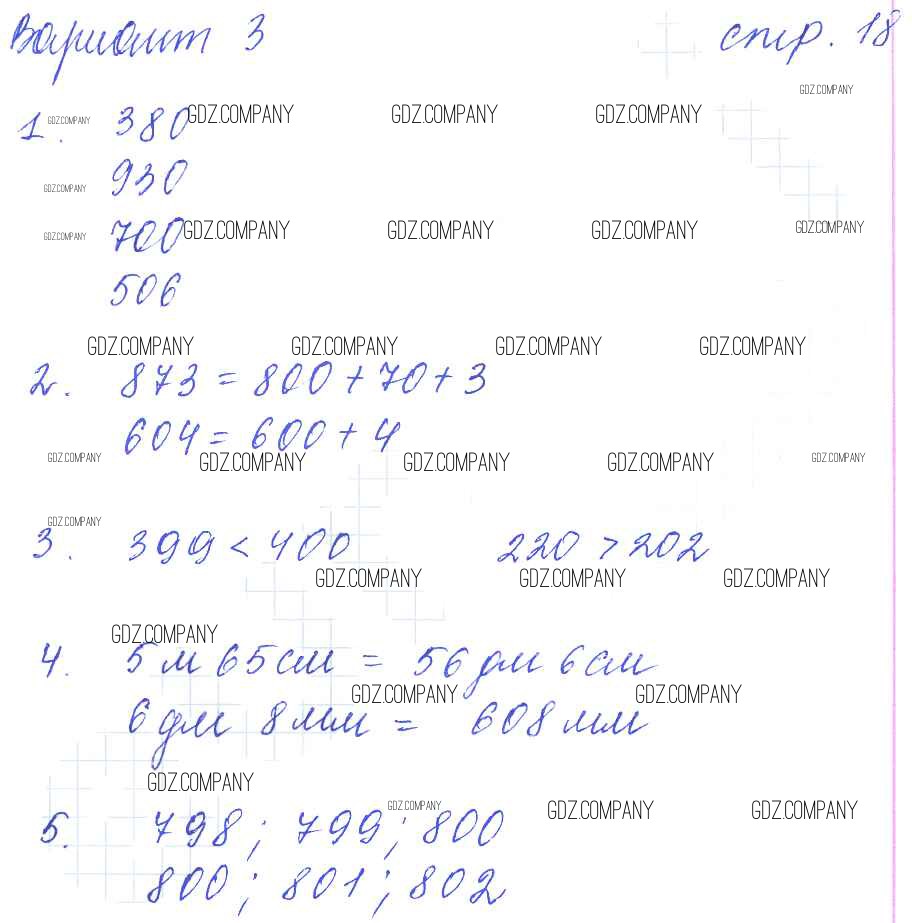 Вариант 3 стр. 18
GDZ.COMPANY
1. 380
GDZ.COMPANY GDZ.COMPANY GDZ.COMPANY GDZ.COMPANY
930
GDZ.COMPANY
700
GDZ.COMPANY GDZ.COMPANY GDZ.COMPANY GDZ.COMPANY GDZ.COMPANY
506
GDZ.COMPANY GDZ.COMPANY GDZ.COMPANY GDZ.COMPANY
2. 873 = 800 + 70 + 3
604 = 600 + 4
GDZ.COMPANY GDZ.COMPANY GDZ.COMPANY GDZ.COMPANY GDZ.COMPANY
GDZ.COMPANY
3. 399 < 400 220 > 202
GDZ.COMPANY GDZ.COMPANY GDZ.COMPANY
GDZ.COMPANY
4. 5 м 65 см = 56 дм 6 см
GDZ.COMPANY GDZ.COMPANY
6 дм 8 мм = 608 мм
GDZ.COMPANY
GDZ.COMPANY GDZ.COMPANY GDZ.COMPANY
5. 798 ; 799 ; 800
800 ; 801 ; 802